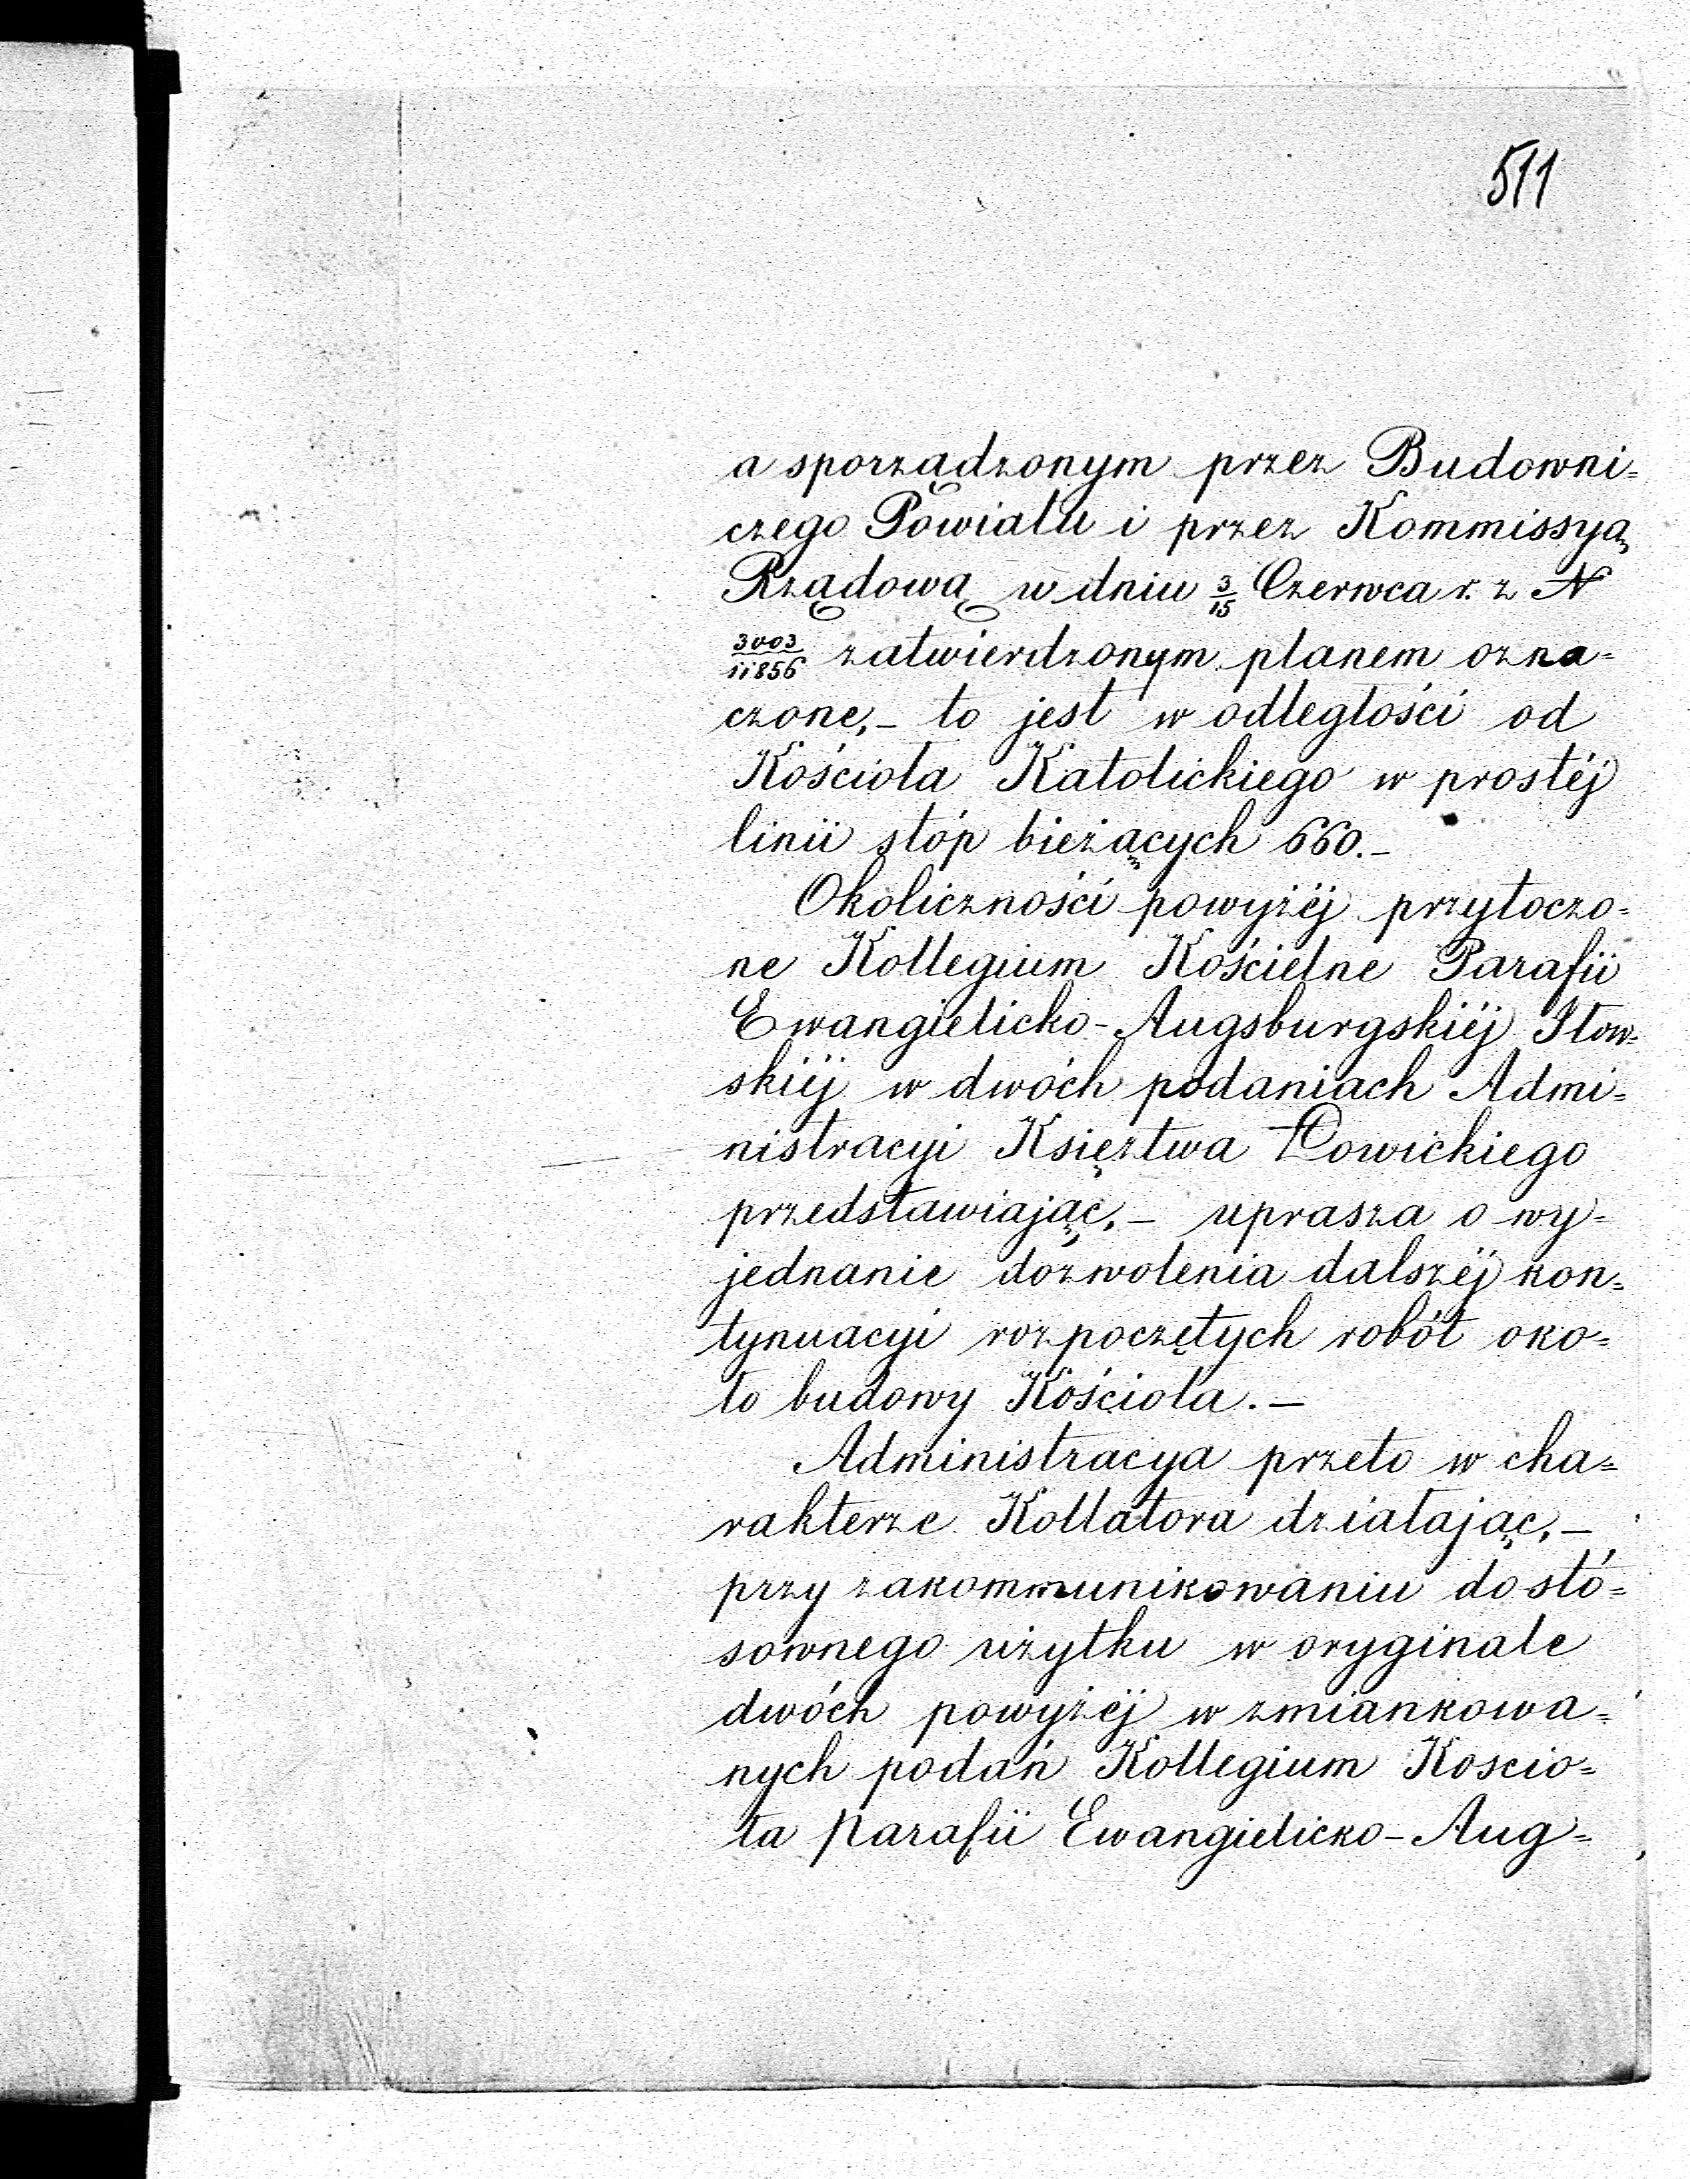 511
a sporządzonym przez Budowni=
czego Powiatu i przez Kommissyą
Rządową w dniu 3/15 Czerwca r. z N
3003/11856 zatwierdzonym planem ozna=
czone,- to jest w odległości od
Kościoła Katolickiego w prostéj
linii stóp bieżących 660.-
Okoliczności powyżéj przytoczo=
ne Kollegium Kościelne Parafii
Ewangielicko-Augsburgskiéj Iłow=
skiéj w dwóch podaniach Admi=
nistracyi Księztwa Łowickiego
przedstawiając,- uprasza o wy=
jednanie dozwolenia dalszéj kon=
tynuacyi rozpoczętych robót oko=
ło budowy Kościoła.-
Administracya przeto w cha=
rakterze Kollatora działając,-
przy zakommunikowaniu do stó=
sownego użytku w oryginale
dwóch powyżéj wzmiankowa=
nych podań Kollegium Koscio=
ła Parafii Ewangielicko-Aug=